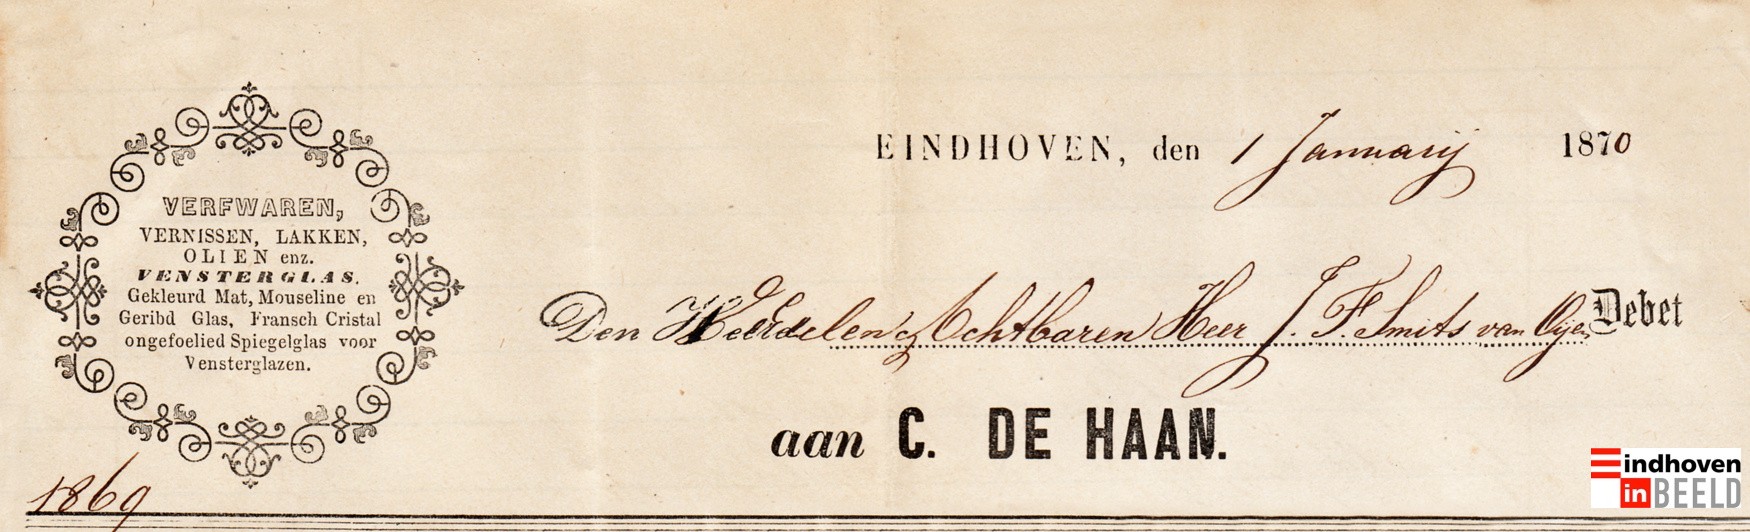 VERFWAREN,
VERNISSEN, LAKKEN,
OLIEN enz.
VENSTERGLAS.
Gekleurd Mat, Mouseline en
Geribd Glas, Fransch Cristal
ongefoelied Spiegelglas voor
Vensterglazen.
EINDHOVEN, den 1 Januarij 1870
Den Weledelen & Achtbaren Heer J. F. Smits van Oijen Debet
aan C. DE HAAN.
1869
Eindhoven
in BEELD